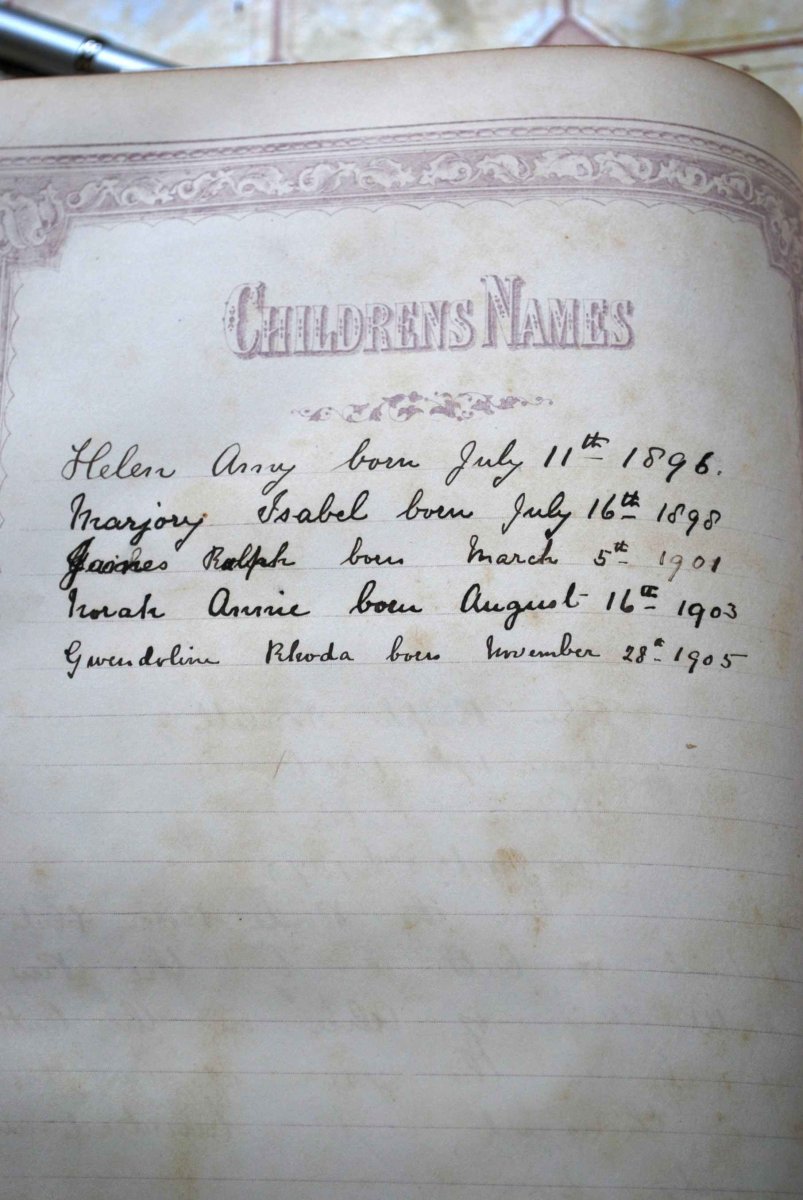 CHILDRENS NAMES
Helen Amy born July 11th 1896.
Marjory Isabel born July 16th 1898
James Ralph born March 5th 1901
Norah Annie born August 16th 1903
Gwendoline Rhoda born November 28th 1905